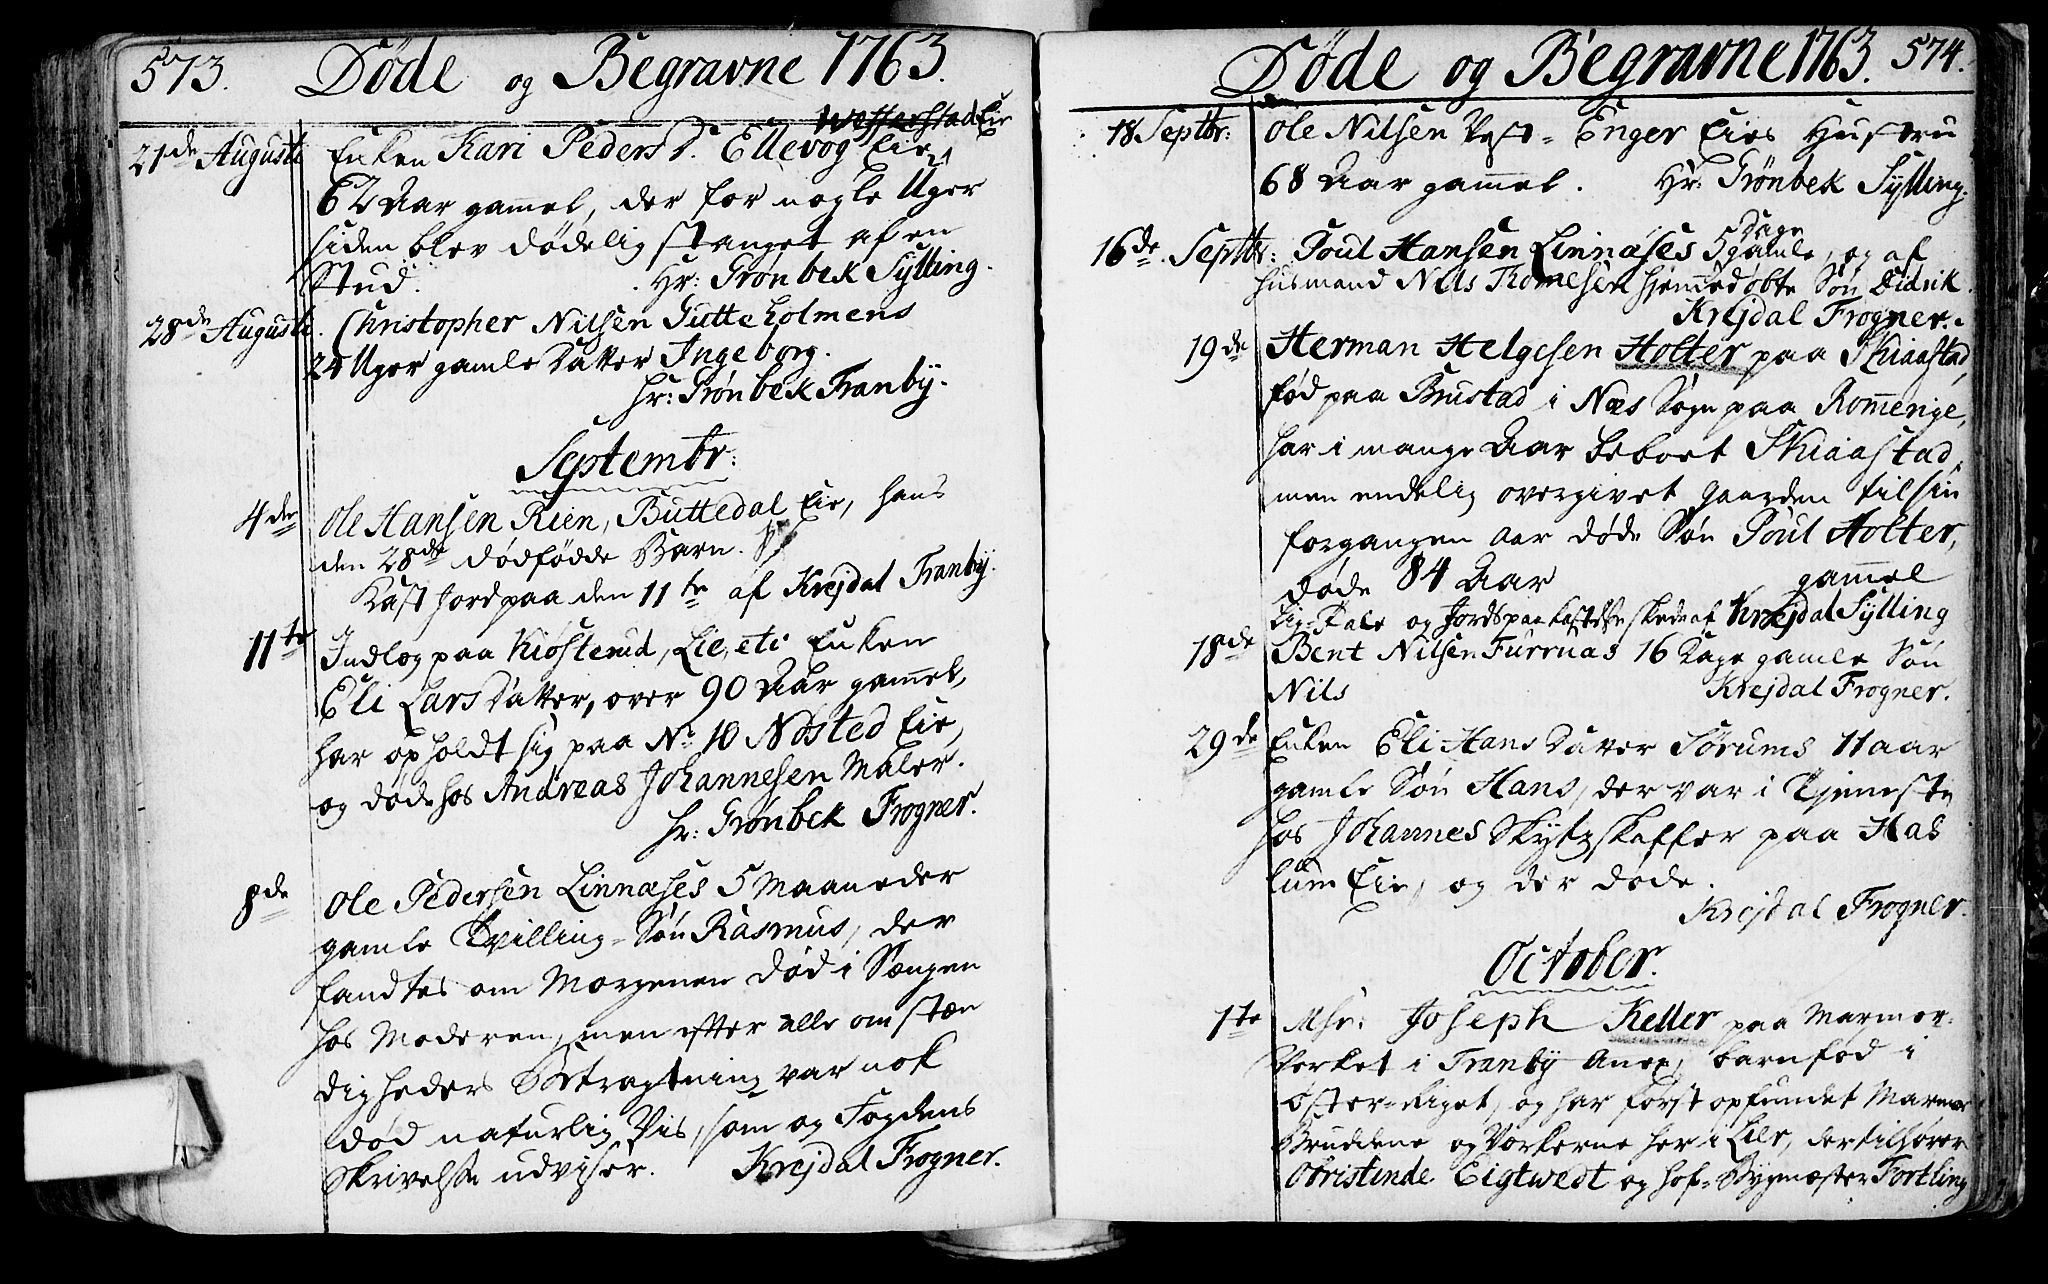 573. Døde og Begravne 1763.
Westerstad Eie
21de Augusti Enken Kari Peders D. Ellevog Eie,
62 Aar gamel, der for nogle Uger
siden blev dødelig stanget af en
Stud. Hr: Grønbek Sylling.
28de Augusti. Christopher Nilsen Gutteholmens
24 Uger gamle Datter Ingeborg.
Hr: Grønbek Tranby.
Septembr:
4de Ole Hansen Rien, Buttedal Eie, hans
den 28de dødfødde Barn.
Kast Jord paa den 11te af Krejdal Tranby.
11te Indlæg paa Kiøsterud, Lie, etc Enken
Eli Lars Datter, over 90 Aar gamel,
har opholdt sig paa No 10 Nøsted Eie,
og døde hos Andreas Johannesen Maler.
Hr: Grønbek Frogner.
8de Ole Pedersen Linnæses 5 Maaneder
gamle Tvilling-Søn Rasmus, der
fandtes om Morgenen død i Sængen
hos Moderen, men efter alle omstæn
digheders Betragtning var nok
død naturlig Vis, som og Fogdens
Skrivelse udviser. Krejdal Frogner.
574. Døde og Begravne 1763.
18 Septbr: Ole Nilsen Vest-Enger Eies Hustru
68 Aar gamel. Hr: Grønbek Sylling.
16de Septbr: Poul Hansen Linnæses 5 Dage gamle, og af
Husmand Nils Thomesen hjemedøbte Søn Didrik.
Krejdal Frogner.
19de Herman Helgesen Holter paa Skiaastad,
fød paa Brustad i Næs Sogn paa Romerige,
har i mange Aar beboet Skiaastad,
men endelig overgivet Gaarden til sin
forgangen Aar døde Søn Poul Holter,
døde 84 Aar gamel
Lig-Tale og Jords paakastelse skede af Krejdal Sylling
18de Bent Nilsen Furruas 16 Dage gamle Søn
Nils Krejdal Frogner.
29de Enken Eli Hans Datter Sørums 11 aar
gamle Søn Hans, der var i Tjeneste
hos Johannes Skydsskaffer paa Has
lum Eie, og der døde.
Krejdal Frogner.
October.
1te Msr: Joseph Keller paa Marmor-
Verket i Tranby Anex, barnfød i
Øster-Riget, og har først opfundet Marmor
Bruddene og Verkerne her i Lier, der tilhører
Ostristinde Eigtwedt og Hof-Bygmester Fortling